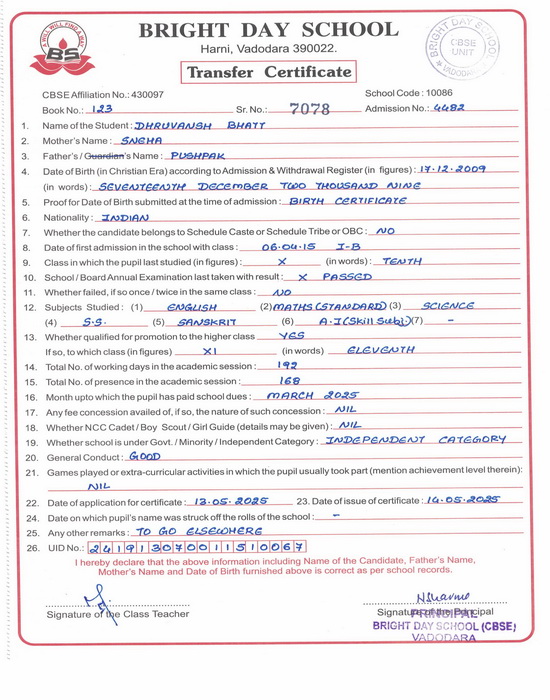 A WILL WILL FIND A WAY
BS
BRIGHT DAY SCHOOL
Harni, Vadodara 390022.
BRIGHT DAY SCHOOL
CBSE
UNIT
VADODARA
Transfer Certificate
CBSE Affiliation No.: 430097 School Code : 10086
Book No.: 123 Sr. No.: 7078 Admission No.: 4482
1. Name of the Student : DHRUVANSH BHATT
2. Mother's Name : SNEHA
3. Father's / Guardian's Name : PUSHPAK
4. Date of Birth (in Christian Era) according to Admission & Withdrawal Register (in figures) : 17.12.2009
(in words) : SEVENTEENTH DECEMBER TWO THOUSAND NINE
5. Proof for Date of Birth submitted at the time of admission : BIRTH CERTIFICATE
6. Nationality : INDIAN
7. Whether the candidate belongs to Schedule Caste or Schedule Tribe or OBC : NO
8. Date of first admission in the school with class : 06.04.15 I-B
9. Class in which the pupil last studied (in figures) : X (in words) : TENTH
10. School / Board Annual Examination last taken with result : X PASSED
11. Whether failed, if so once / twice in the same class : NO
12. Subjects Studied : (1) ENGLISH (2) MATHS (STANDARD) (3) SCIENCE
(4) S.S. (5) SANSKRIT (6) A.I (Skill Subj.) (7) -
13. Whether qualified for promotion to the higher class YES
If so, to which class (in figures) XI (in words) ELEVENTH
14. Total No. of working days in the academic session : 192
15. Total No. of presence in the academic session : 168
16. Month upto which the pupil has paid school dues : MARCH 2025
17. Any fee concession availed of, if so, the nature of such concession : NIL
18. Whether NCC Cadet / Boy Scout / Girl Guide (details may be given) : NIL
19. Whether school is under Govt. / Minority / Independent Category : INDEPENDENT CATEGORY
20. General Conduct : GOOD
21. Games played or extra-curricular activities in which the pupil usually took part (mention achievement level therein):
NIL
22. Date of application for certificate : 13.05.2025 23. Date of issue of certificate : 14.05.2025
24. Date on which pupil's name was struck off the rolls of the school : -
25. Any other remarks : TO GO ELSEWHERE
26. UID No.: 241913070011510067
I hereby declare that the above information including Name of the Candidate, Father's Name,
Mother's Name and Date of Birth furnished above is correct as per school records.
NSharma
Signature of the Class Teacher Signature of the Principal
PRINCIPAL
BRIGHT DAY SCHOOL (CBSE)
VADODARA